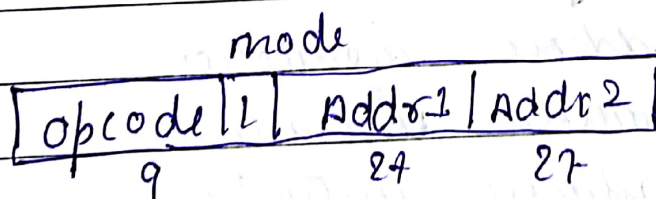 mode
Opcode 1 Addr1 Addr2
9 27 27